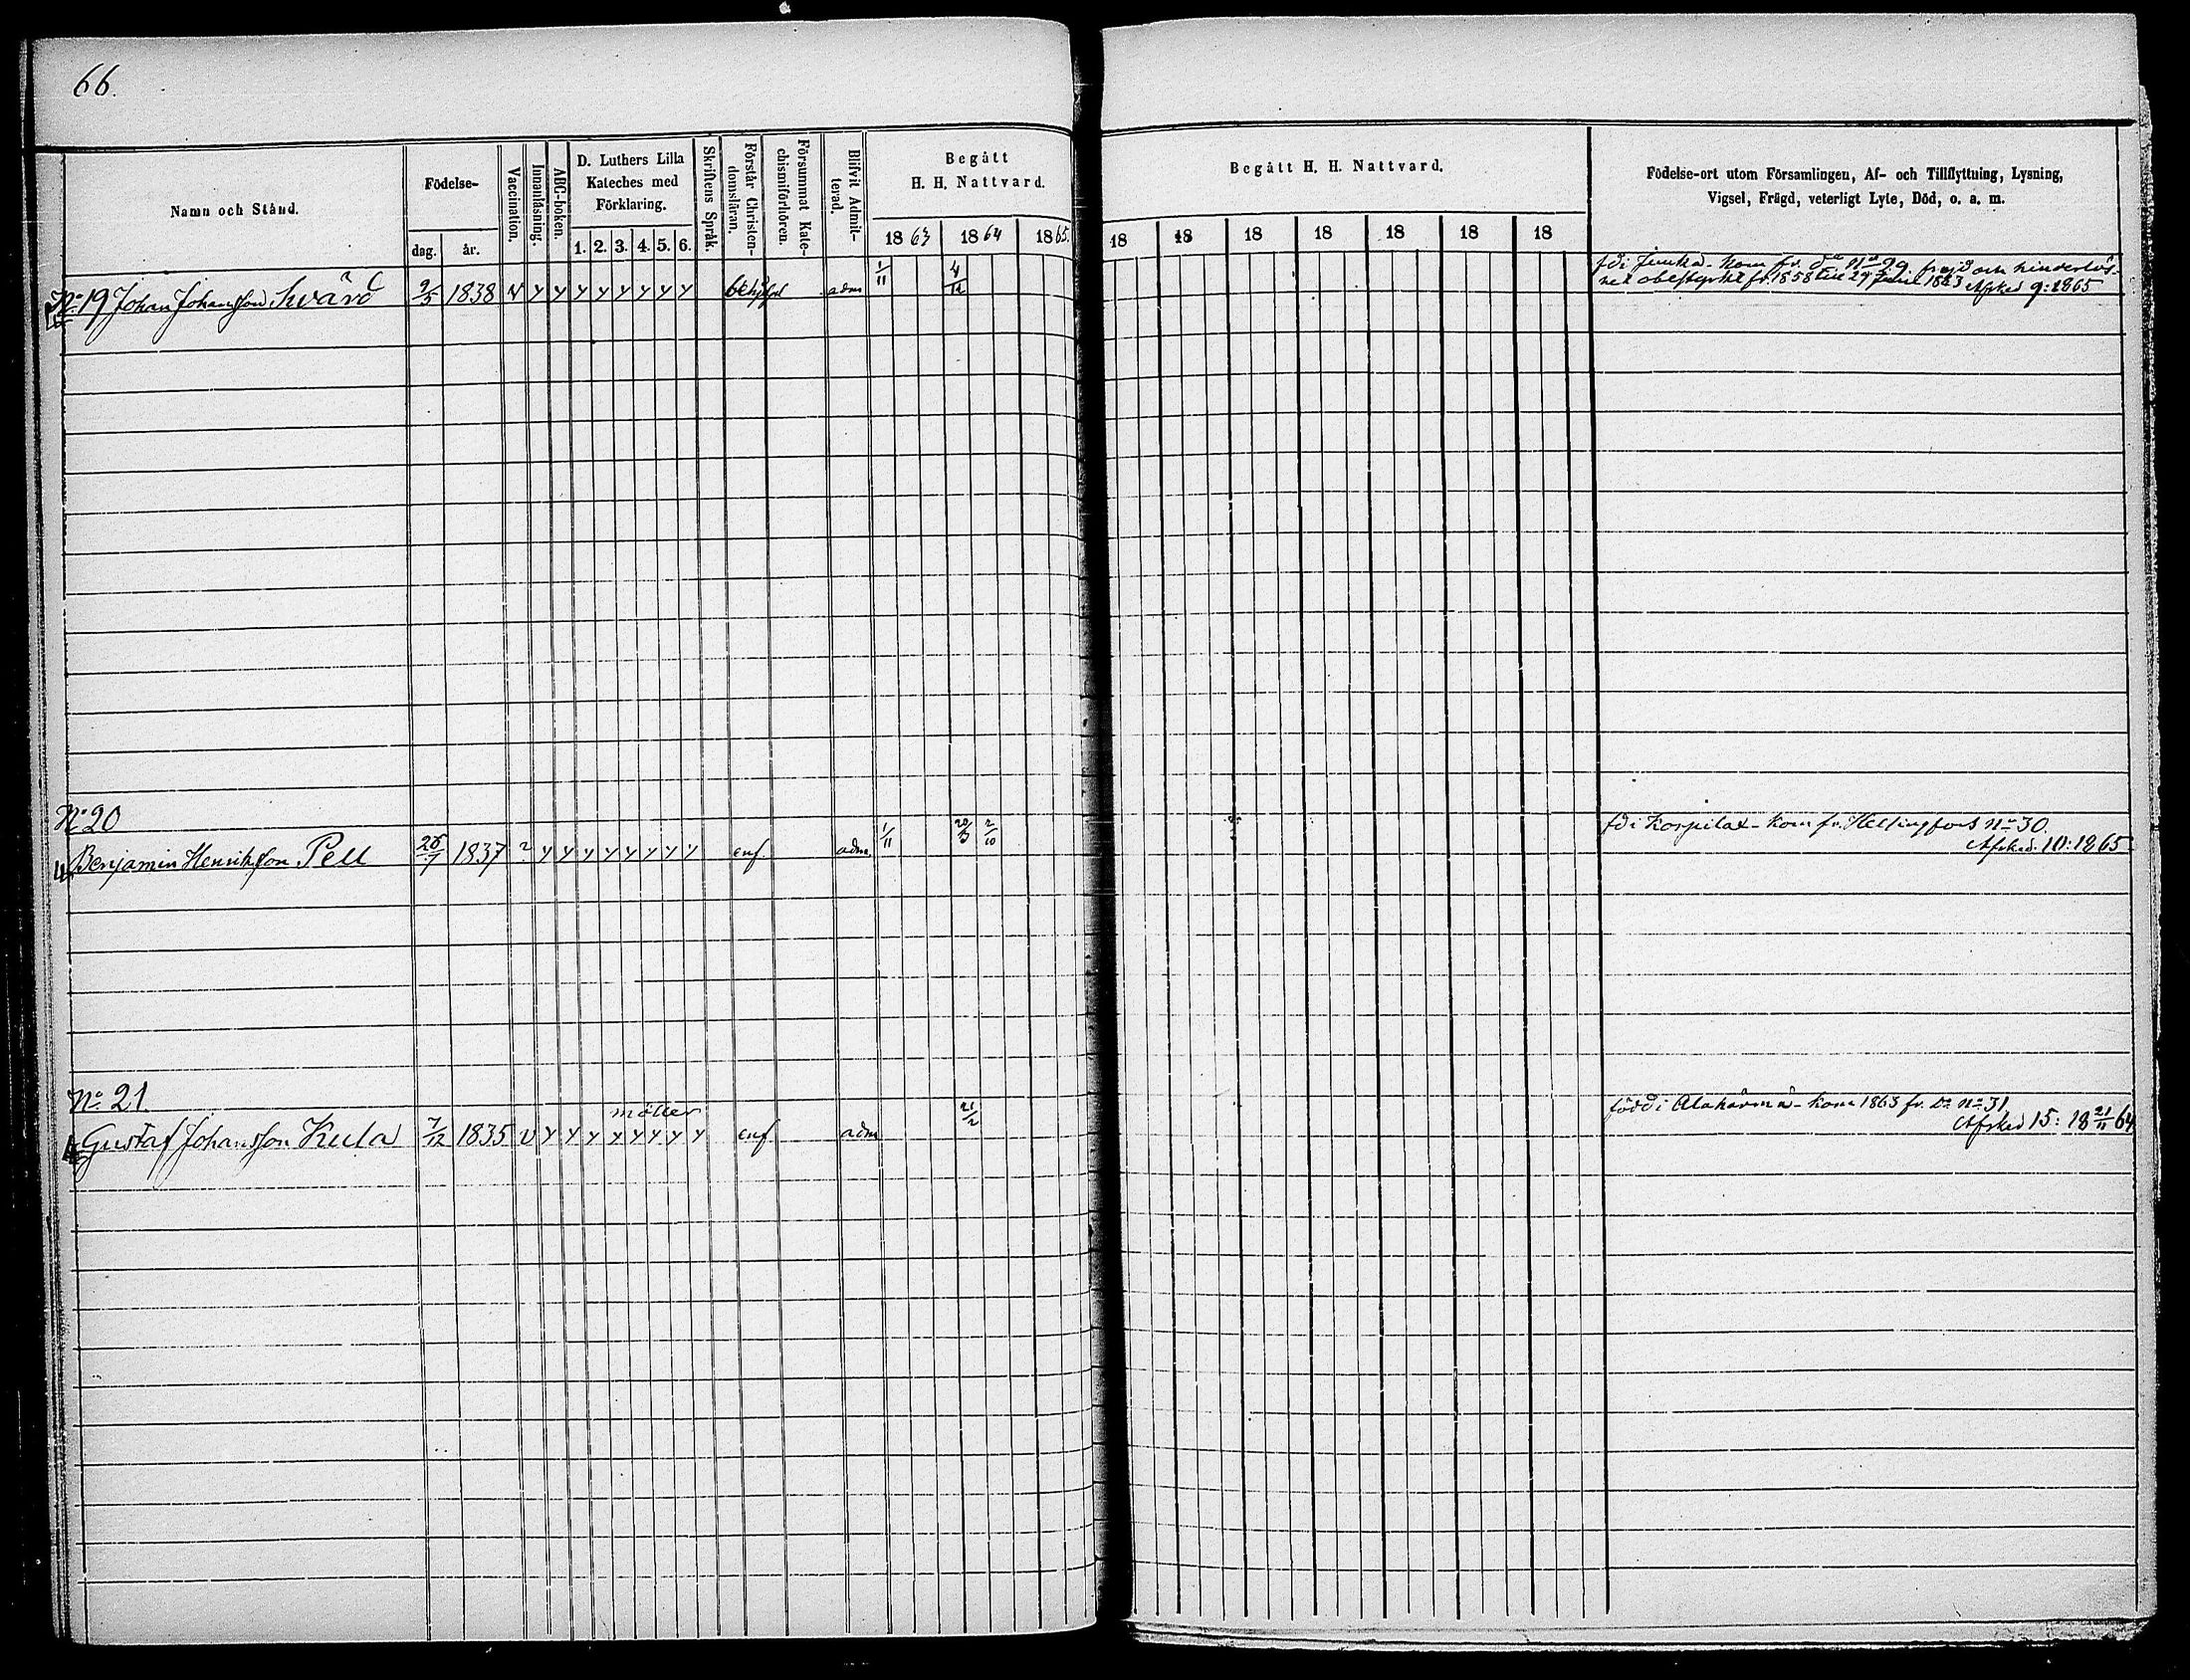 66.
Namn och Stånd.
Födelse-
dag.
år.
Vaccination.
Innanläsning.
ABC-boken.
D. Luthers Lilla
Kateches med
Förklaring.
1. 2. 3. 4. 5. 6.
Skriftens Språk.
Förstår Christen-
domsläran.
Försummat Kate-
chismiförhören.
Blifvit Admit-
terad.
Begått
H. H. Nattvard.
1863 1864 1865.
Begått H. H. Nattvard.
18 18 18 18 18 18 18
Födelse-ort utom Församlingen, Af- och Tillflyttning, Lysning,
Vigsel, Frägd, veterligt Lyte, Död, o. a. m.
No 19 Johan Johansson Swärd 9/5 1838 v y y y y y y y y adm 1/11 4/12
kom fr. frejd och hinderlös-
het obestyrkt fr. 1858 1863 Afsked 9: 1865
No 20
Benjamin Henriksson Pell 25/7 1837 v y y y y y y y y enf. adm 1/11 20/3 2/10
fd i kom fr. Helsingfors No 30.
Afsked. 10: 1865
No 21.
möller
Gustaf Johansson Kula 7/12 1835 v y y y y y y y y enf adm 21/2
född i Alahärmä - kom 1863 fr. Do No 31
Afsked 15: 18 21/11 64